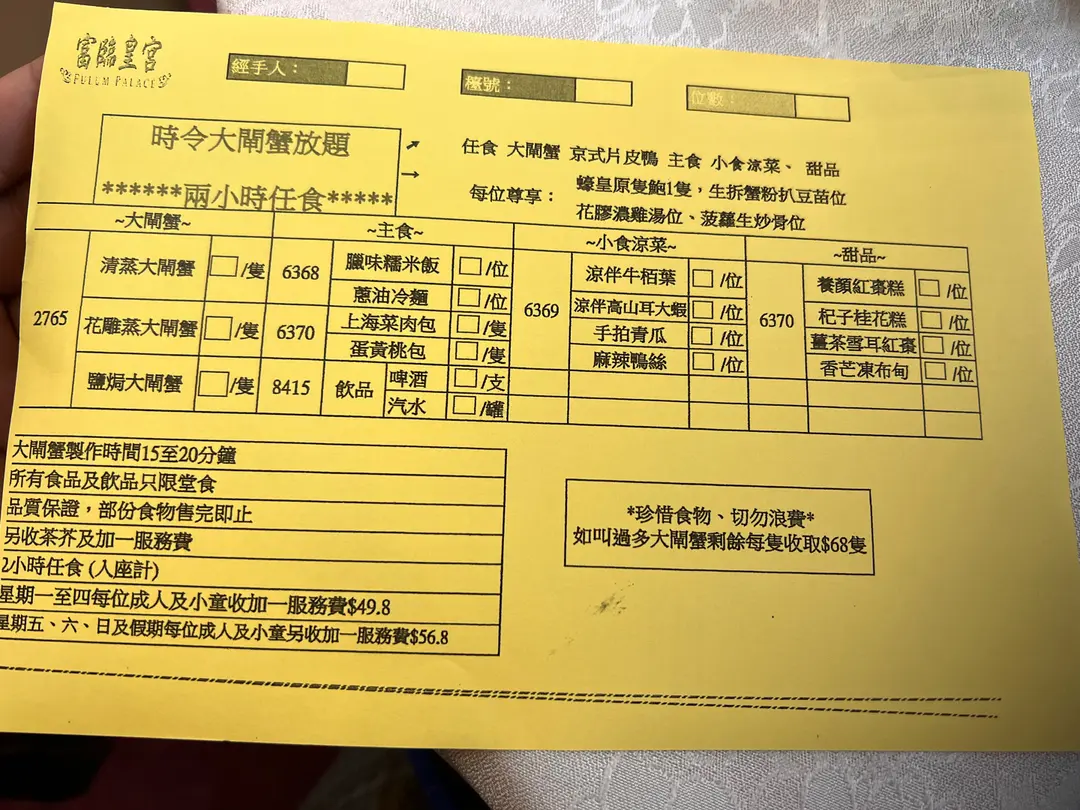 富臨皇宮
FULUM PALACE
經手人：
檯號：
位數：
時令大閘蟹放題
******兩小時任食*****
任食 大閘蟹 京式片皮鴨 主食 小食涼菜、 甜品
每位尊享： 蠔皇原隻鮑1隻，生拆蟹粉扒豆苗位
花膠濃雞湯位、菠蘿生炒骨位
~大閘蟹~ ~主食~ ~小食涼菜~ ~甜品~
2765
清蒸大閘蟹 /隻
花雕蒸大閘蟹 /隻
鹽焗大閘蟹 /隻
6368
臘味糯米飯 /位
蔥油冷麵 /位
6370
上海菜肉包 /隻
蛋黃桃包 /隻
8415 飲品
啤酒 /支
汽水 /罐
6369
涼伴牛栢葉 /位
涼伴高山耳大蝦 /位
手拍青瓜 /位
麻辣鴨絲 /位
6370
養顏紅棗糕 /位
杞子桂花糕 /位
薑茶雪耳紅棗 /位
香芒凍布甸 /位
大閘蟹製作時間15至20分鐘
所有食品及飲品只限堂食
品質保證，部份食物售完即止
另收茶芥及加一服務費
2小時任食 (入座計)
星期一至四每位成人及小童收加一服務費$49.8
星期五、六、日及假期每位成人及小童另收加一服務費$56.8
*珍惜食物、切勿浪費*
如叫過多大閘蟹剩餘每隻收取$68隻